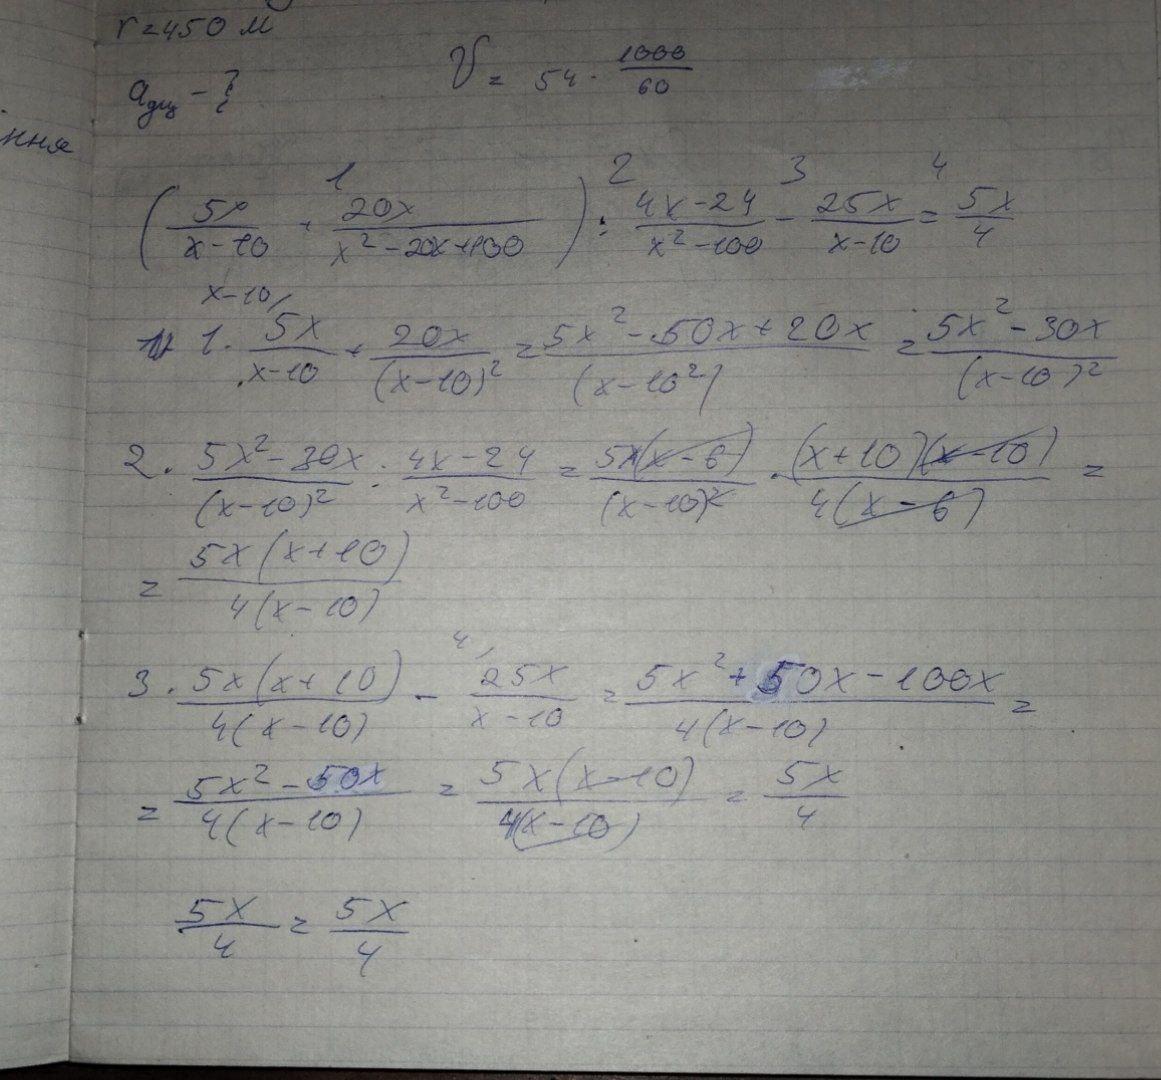 r=450 м
a дц - ?
V = 54 · 1000/60
ння
1 2 3 4
(5x/(x-10) + 20x/(x²-20x+100)) : (4x-24)/(x²-100) - 25x/(x-10) = 5x/4
x-10/
1. 5x/(x-10) + 20x/(x-10)² = (5x²-50x+20x)/(x-10²) = (5x²-30x)/(x-10)²
2. (5x²-30x)/(x-10)² : (4x-24)/(x²-100) = 5x(x-6)/(x-10)² · (x+10)(x-10)/4(x-6) =
= 5x(x+10)/4(x-10)
4/
3. 5x(x+10)/4(x-10) - 25x/(x-10) = (5x²+50x-100x)/4(x-10) =
= (5x²-50x)/4(x-10) = 5x(x-10)/4(x-10) = 5x/4
5x/4 = 5x/4